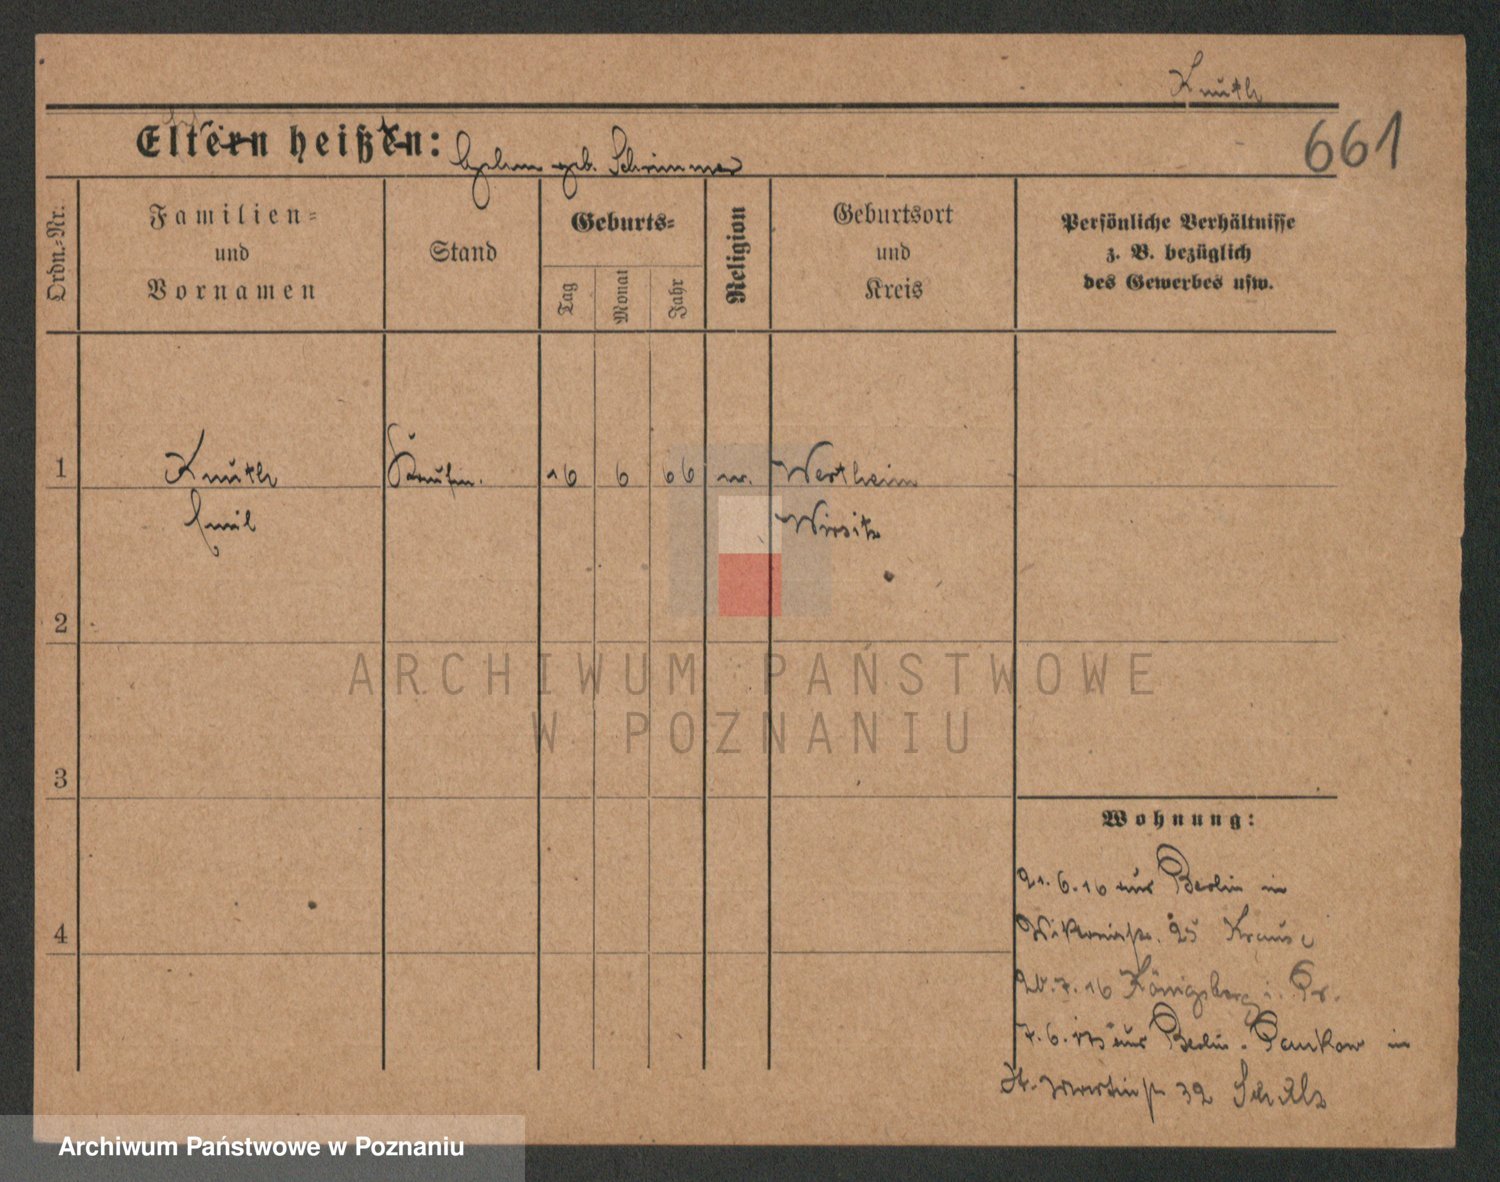 Knuth
661
Eltern heißen:
geb. Schrimmer
Ordn.-Nr.
Familien-
und
Vornamen
Stand
Geburts-
Tag
Monat
Jahr
Religion
Geburtsort
und
Kreis
Persönliche Verhältnisse
z. B. bezüglich
des Gewerbes usw.
1
Knuth
Kaufm.
16
6
66
Wertheim
Emil
Wirsitz
2
ARCHIWUM PAŃSTWOWE
W POZNANIU
3
Wohnung:
21.6.16 aus Berlin in
25 Krause
4
7.16 Königsberg i. Pr.
7.6. aus Berlin-Pankow in
St. Martinstr 32 Schulz
Archiwum Państwowe w Poznaniu